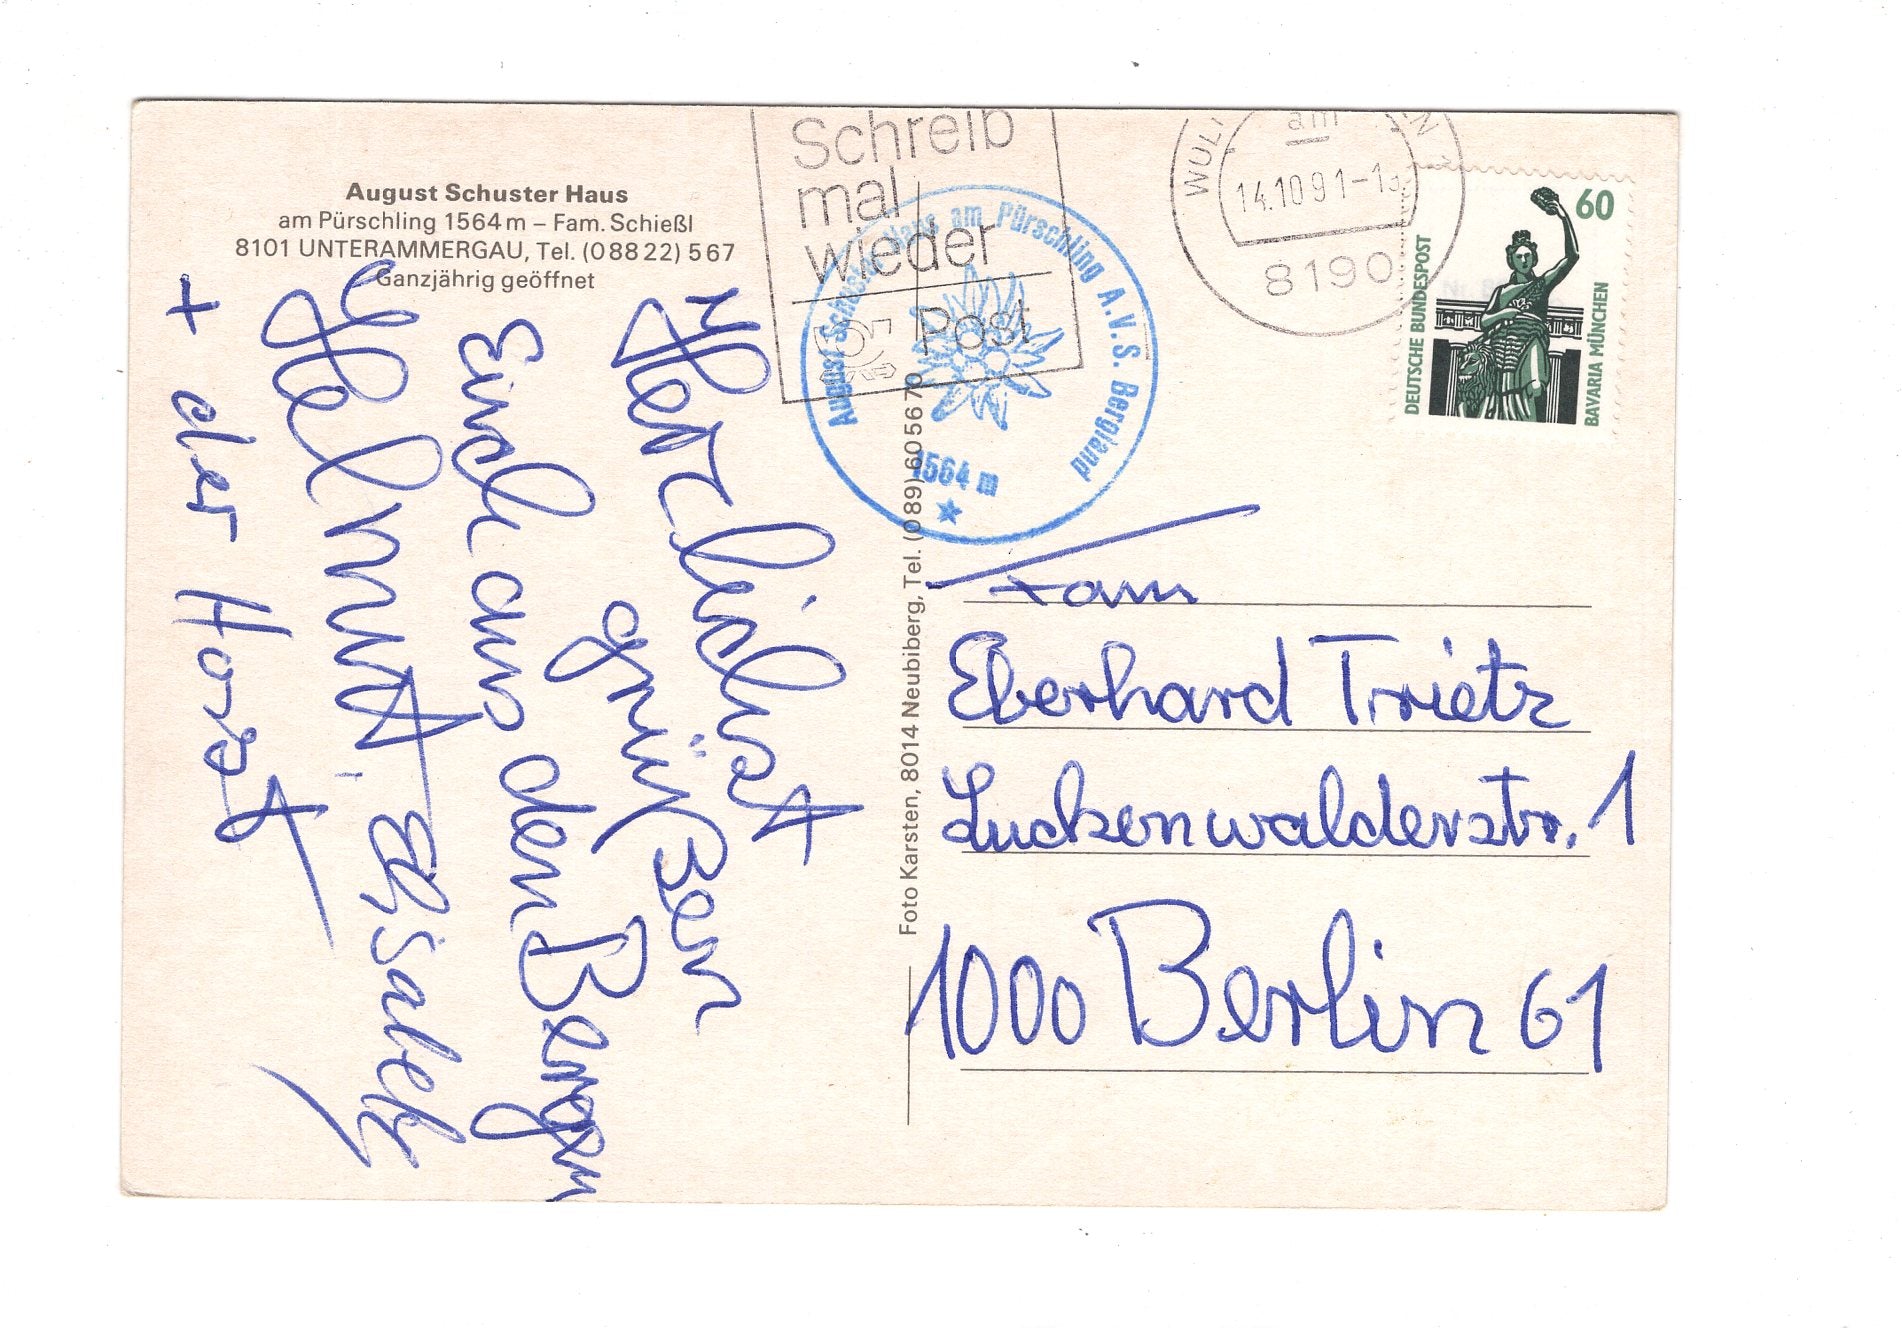 August Schuster Haus
am Pürschling 1564 m – Fam. Schießl
8101 UNTERAMMERGAU, Tel. (08822) 567
Ganzjährig geöffnet
Herzlichst
grüßen
Euch aus den Bergen
Helmut
+ der Horst
Foto Karsten, 8014 Neubiberg, Tel. (089) 605670
Schreib
mal
wieder
Post
August Schuster Haus am Pürschling A.V.S. Bergland
1564 m
am
14.10.91-1
8190
60
DEUTSCHE BUNDESPOST
BAVARIA MÜNCHEN
Fam
Eberhard Trietz
Luckenwalderstr. 1
1000 Berlin 61